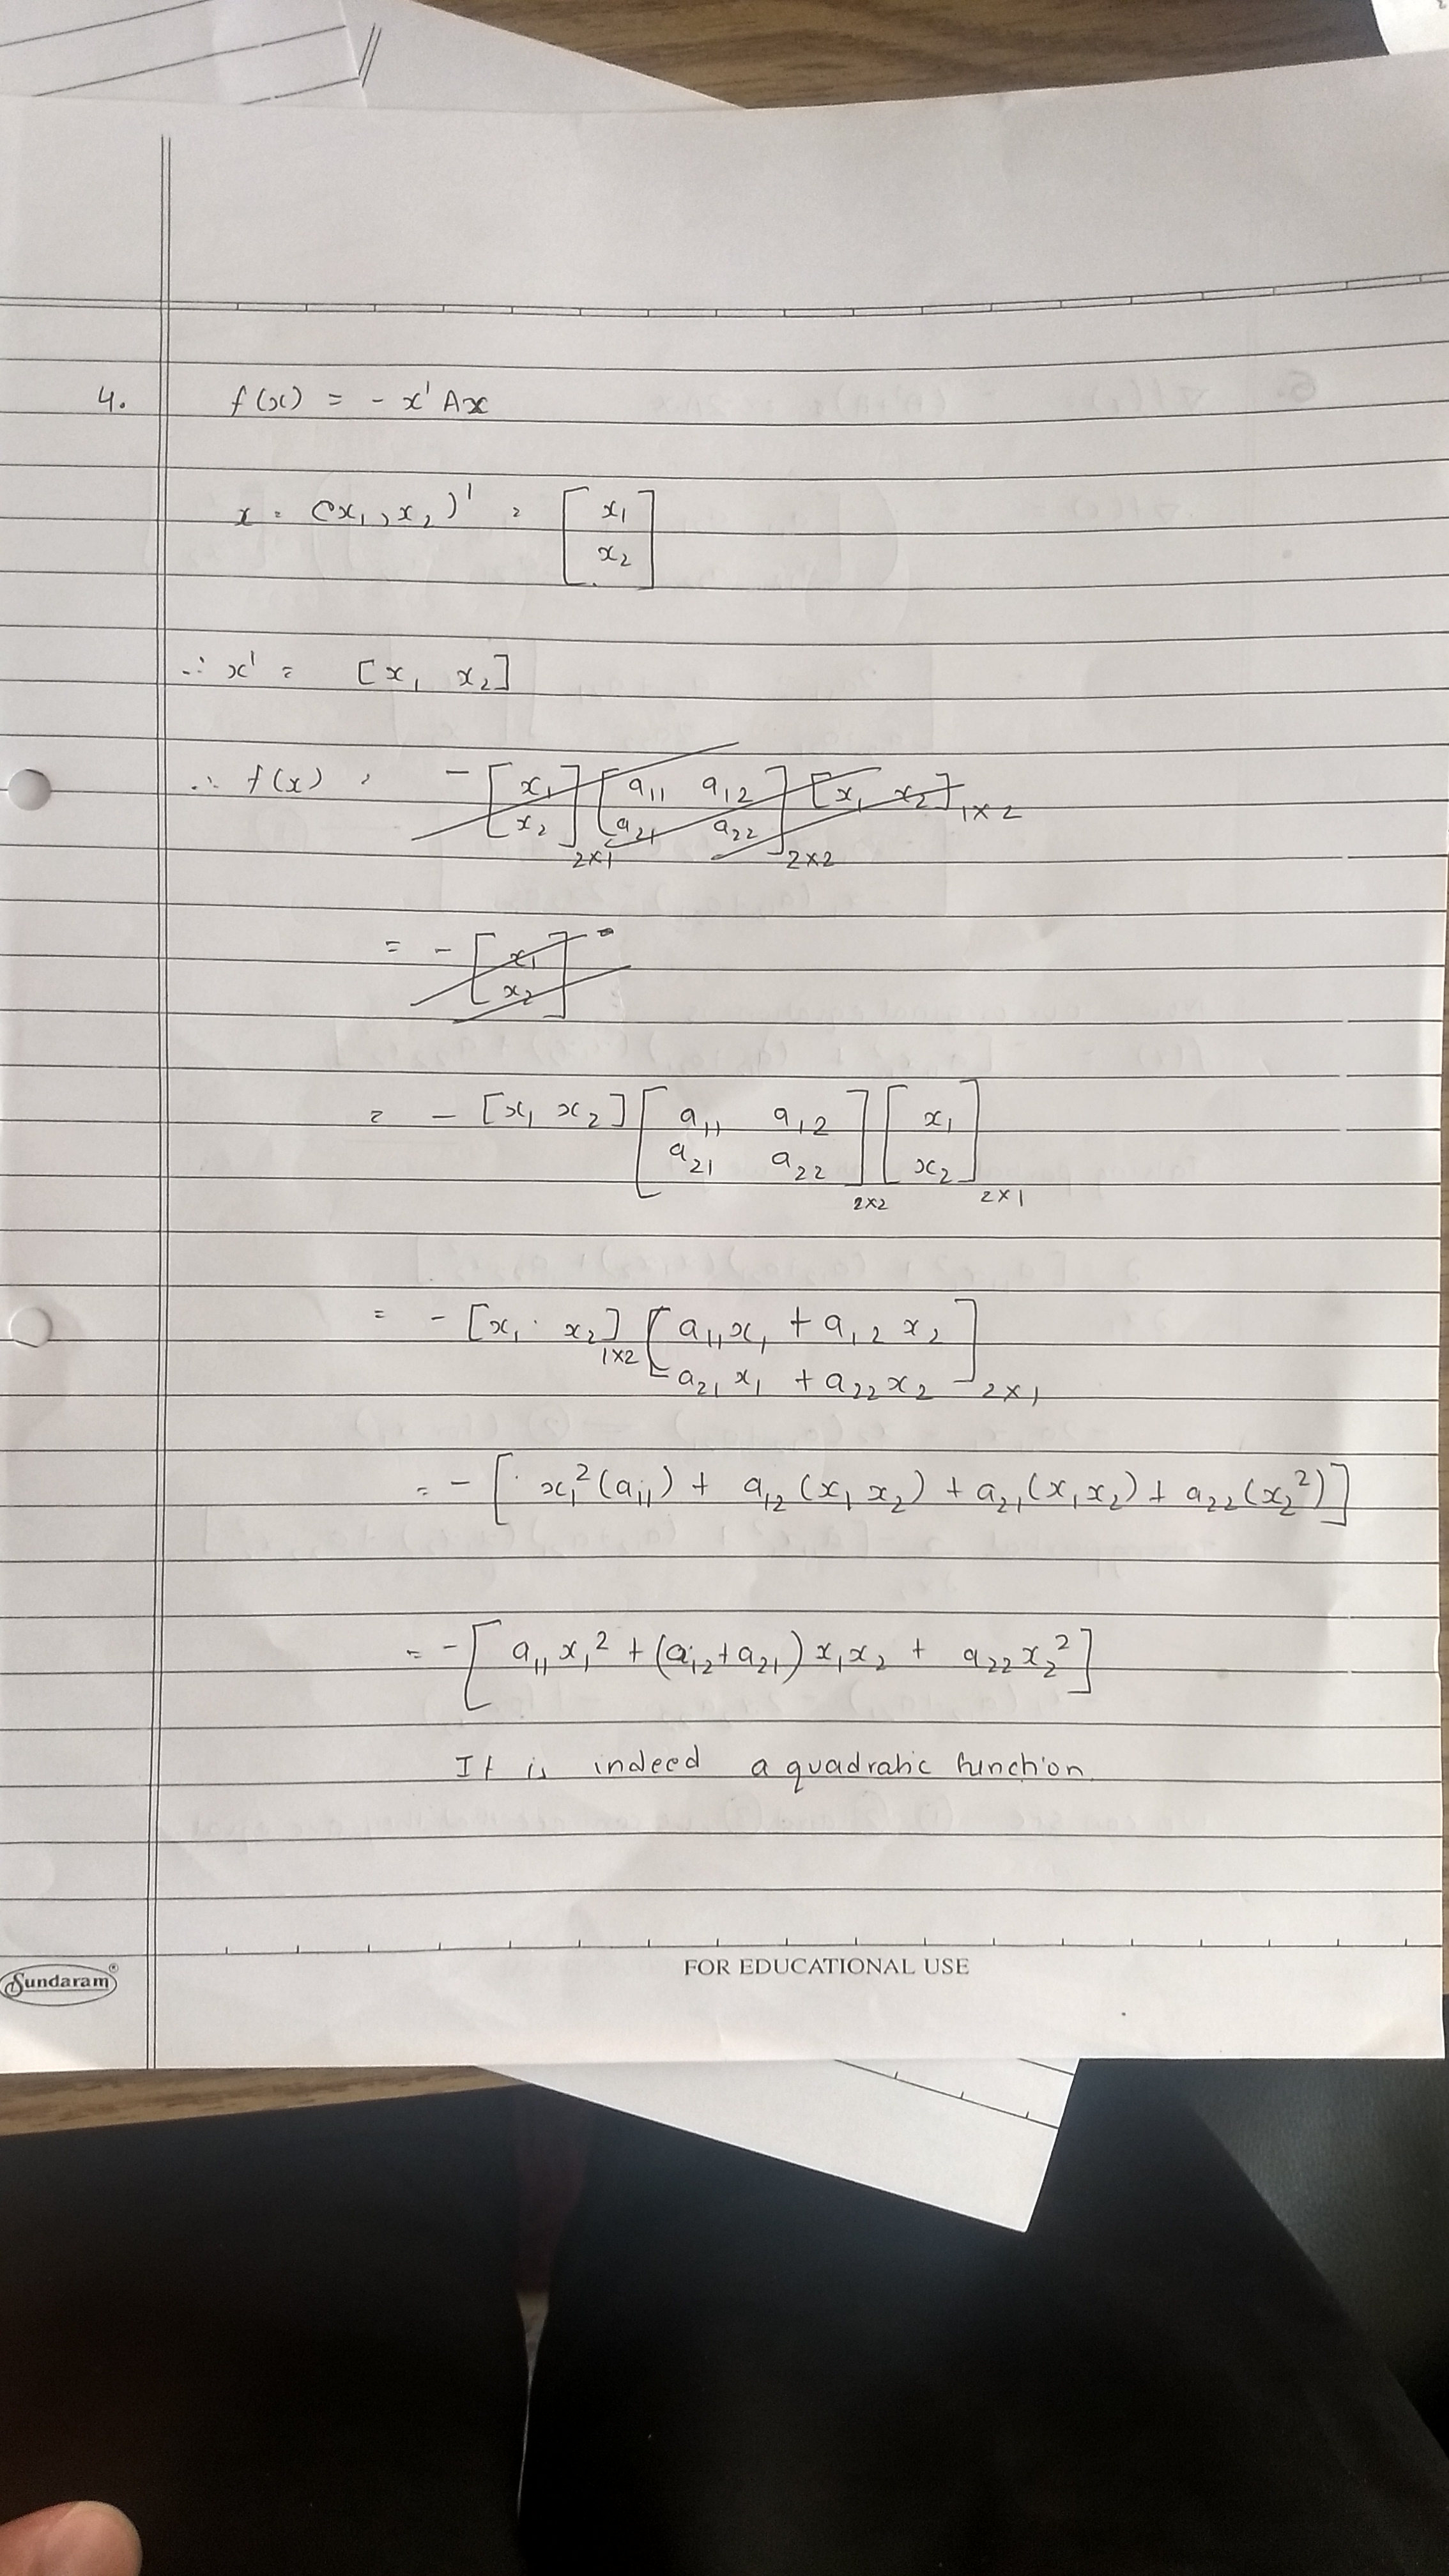 4. f(x) = - x' Ax
x = (x₁, x₂)' = [x₁ x₂]
∴ x' = [x₁ x₂]
∴ f(x) = - [x₁ x₂]₂ₓ₁ [a₁₁ a₁₂ a₂₁ a₂₂]₂ₓ₂ [x₁ x₂]₁ₓ₂
= - [x₁ x₂]
= - [x₁ x₂] [a₁₁ a₁₂ a₂₁ a₂₂]₂ₓ₂ [x₁ x₂]₂ₓ₁
= - [x₁ x₂]₁ₓ₂ [a₁₁x₁ + a₁₂x₂ a₂₁x₁ + a₂₂x₂]₂ₓ₁
= - [x₁²(a₁₁) + a₁₂(x₁x₂) + a₂₁(x₁x₂) + a₂₂(x₂²)]
= - [a₁₁x₁² + (a₁₂+a₂₁)x₁x₂ + a₂₂x₂²]
It is indeed a quadratic function.
Sundaram®
FOR EDUCATIONAL USE